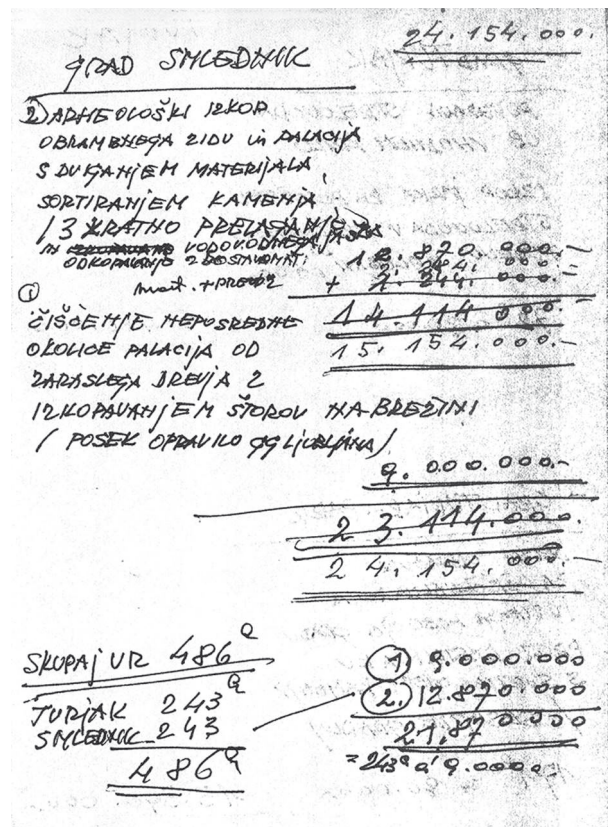 24.154.000.
GRAD SMLEDNIK
2) ARHEOLOŠKI IZKOP
OBRAMBNEGA ZIDU in PALACIJA
S DVIGANJEM MATERIJALA,
SORTIRANJEM KAMENJA,
/ 3 KRATNO PRELAGANJE
IN VODOVODNEGA JAŠKA
ODKOPAVANJE Z DOSTAVO MAT.
12.870.000.-
+ 000.-
mat. + PREVOZ
14.114.000.-
1
ČIŠČENJE NEPOSREDNE
15.154.000.-
OKOLICE PALACIJA OD
ZARASLEGA DREVJA Z
IZKOPAVANJEM ŠTOROV NA BREŽINI
( POSEK OPRAVILO GG LJUBLJANA )
9.000.000.-
23.114.000.
24.154.000.-
SKUPAJ UR 486
TURJAK 243
SMLEDNIK 243
486
1. 9.000.000
2. 12.870.000
21.870.000
= 243 a 9.000